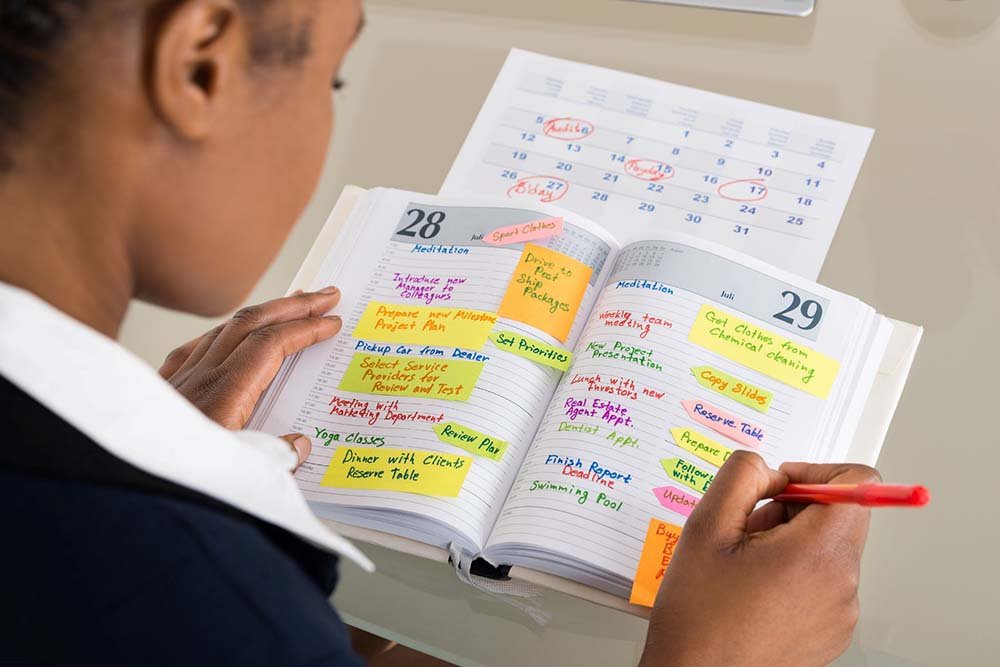 5
Audit 6
7
1
2
3
4
12
13
14
Payday 15
8
9
10
11
19
20
21
22
16
17
18
26
B'day 27
28
29
23
24
25
30
31
28
Juli
Sport Clothes
Meditation
Introduce new
Manager to
Colleagues
Drive to
Post
Ship
Packages
Prepare new Milestone
Project Plan
Set Priorities
Pickup Car from Dealer
Select Service
Providers for
Review and Test
Meeting with
Marketing Department
Review Plan
Yoga Classes
Dinner with Clients
Reserve Table
Juli
29
Meditation
Weekly team
meeting
Get Clothes from
Chemical cleaning
New Project
Presentation
Copy Slides
Lunch with new
investors
Reserve
Table
Real Estate
Agent Appt.
Dentist Appt.
Prepare
Finish Report
Deadline
Follow
with
Swimming Pool
Update
Buy